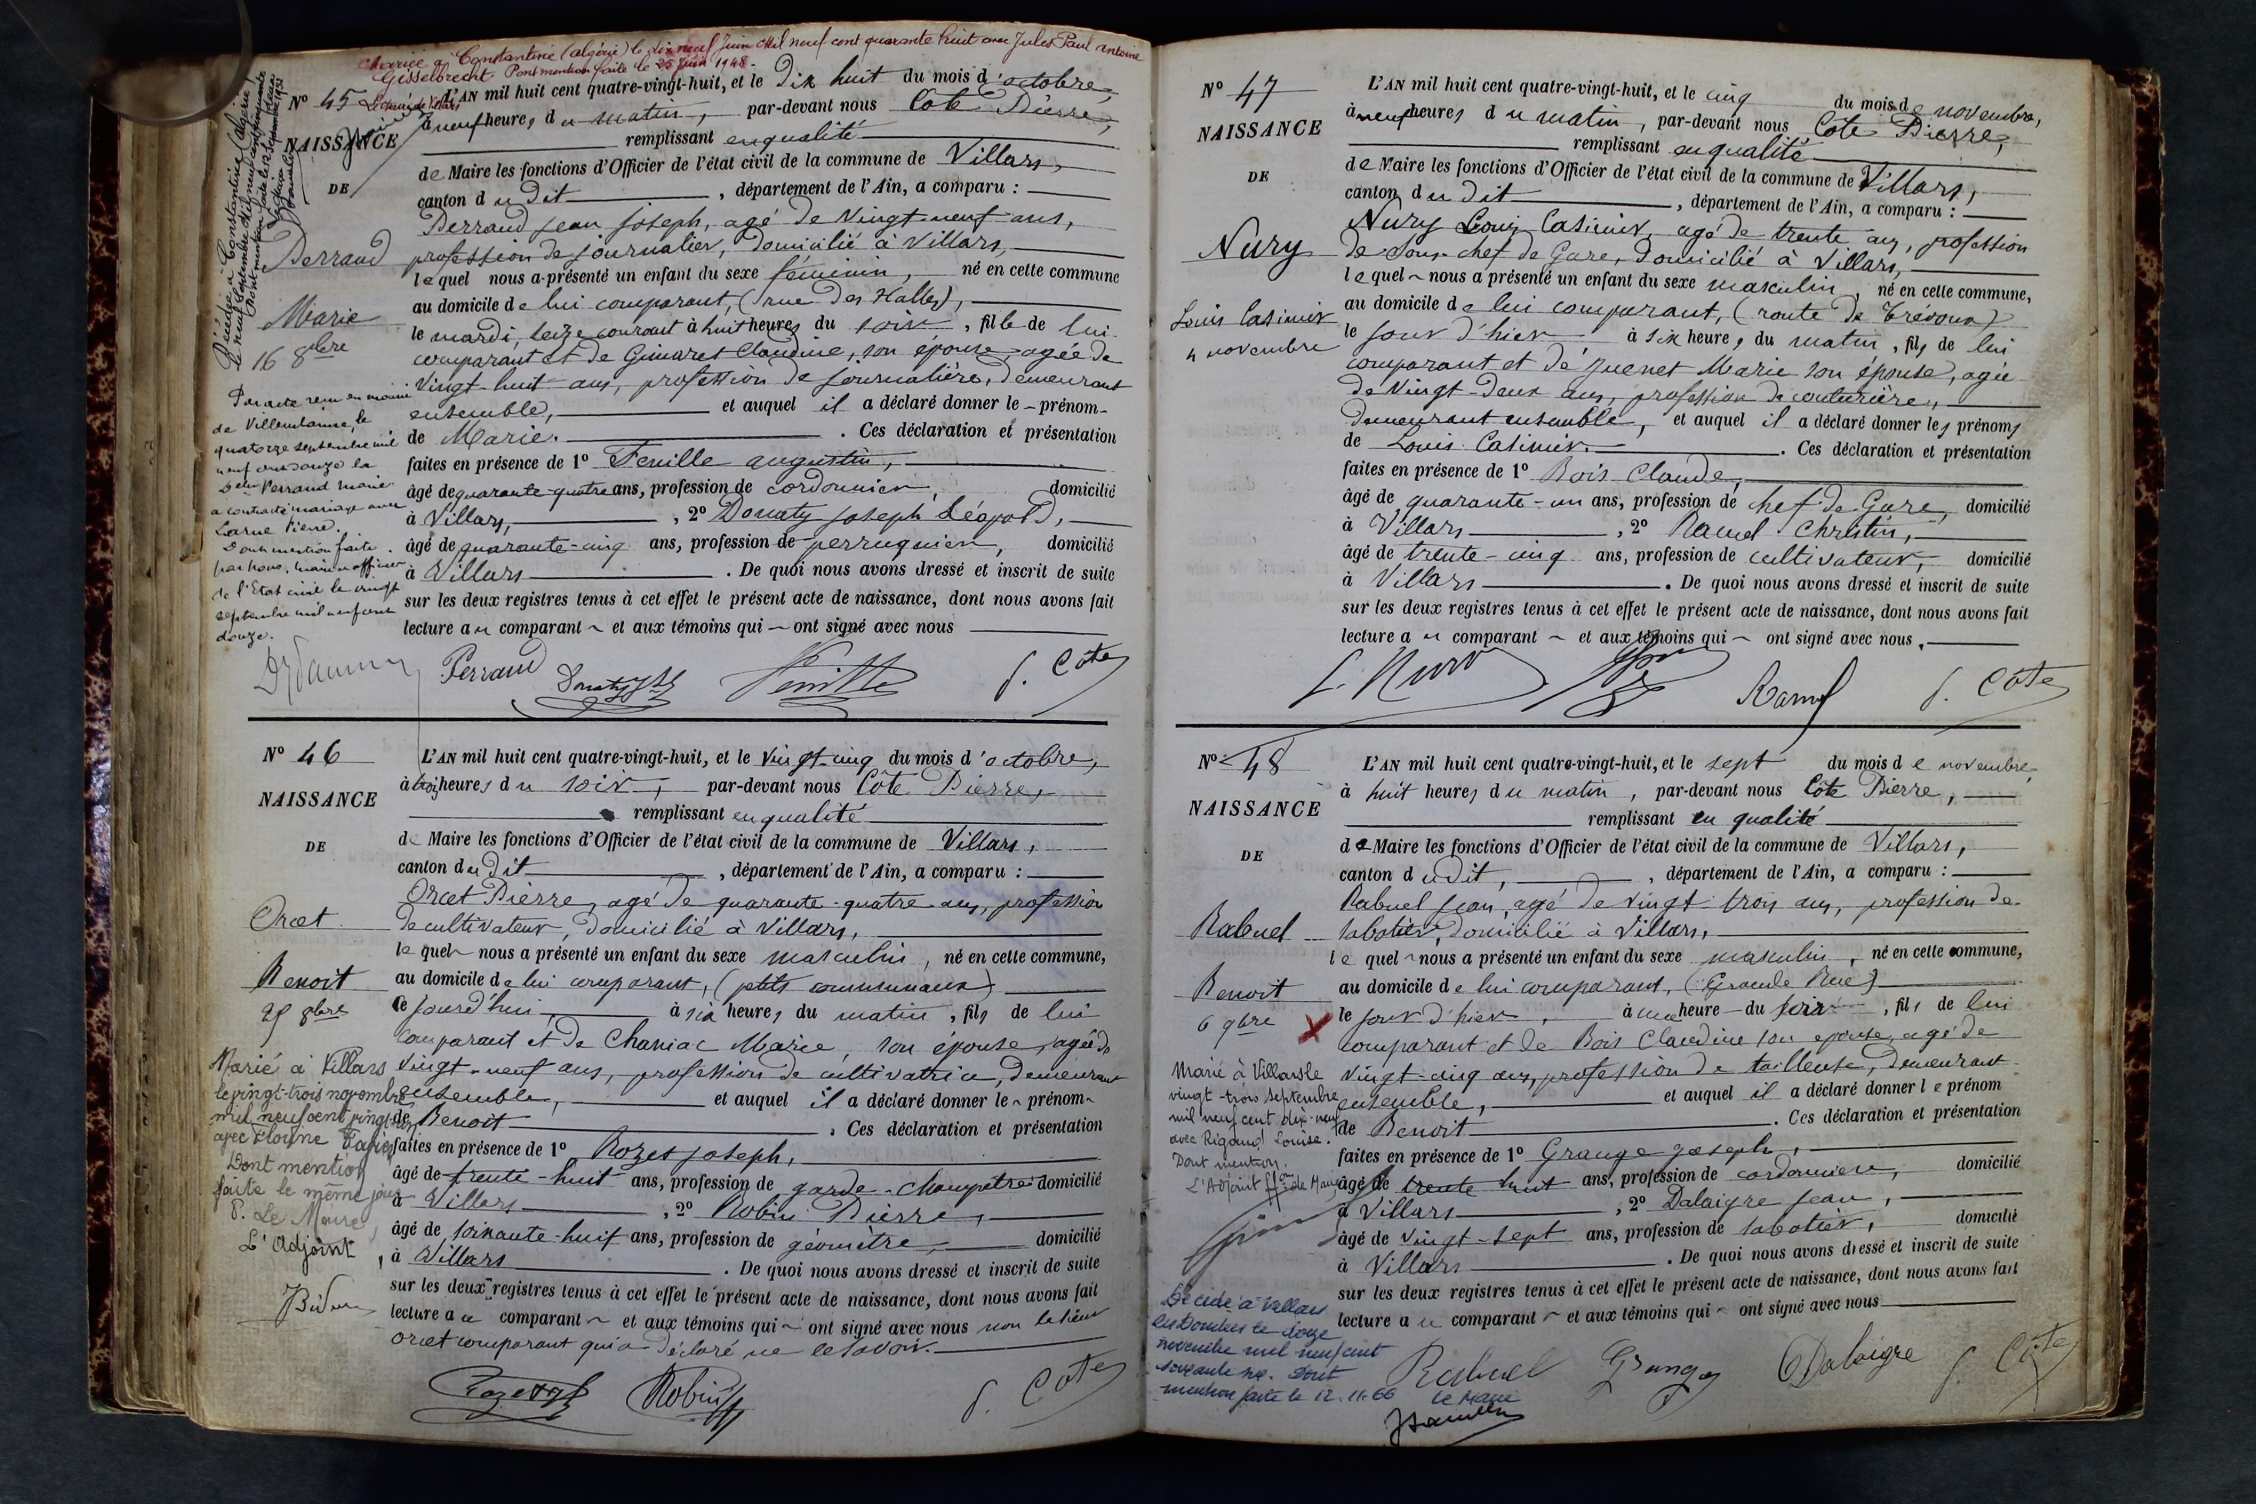 Mariée à Constantine (Algérie) le dix neuf Juin Mil neuf cent quarante huit avec Jules Paul Antoine
Gisselbrecht Dont mention faite le 25 Juin 1948.
N° 45
NAISSANCE
DE
Perraud
Marie
16 8bre
Décédée à Constantine (Algérie)
le neuf Septembre Mil neuf cent cinquante
Dont mention faite le 12 Septembre 1951
Par acte reçu en mairie
de Villeurbanne, le
quatorze septembre mil
neuf cent douze la
Perraud Marie
a contracté mariage avec
Larue Pierre.
Dont mention faite
par nous, maire officier
de l'Etat civil le vingt
septembre mil neuf cent
douze.
L'AN mil huit cent quatre-vingt-huit, et le Dix huit du mois d'octobre,
à neuf heures du matin, par-devant nous Côte Pierre,
remplissant en qualité
de Maire les fonctions d'Officier de l'état civil de la commune de Villars,
canton du Dit, département de l'Ain, a comparu :
Perraud Jean Joseph, agé de Vingt-neuf ans,
profession de journalier, Domicilié à Villars,
lequel nous a présenté un enfant du sexe féminin, né en cette commune
au domicile de lui comparant, (rue Des Halles),
le mardi, seize courant à huit heures du soir, fille de lui
comparant et de Guinaret Claudine, son épouse, agée de
Vingt-huit ans, profession de journalière, demeurant
ensemble, et auquel il a déclaré donner le prénom
de Marie. Ces déclaration et présentation
faites en présence de 1° Feuille augustin,
âgé de quarante-quatre ans, profession de cordonnier, domicilié
à Villars, 2° Donaty Joseph Léopold,
âgé de quarante-cinq ans, profession de perruquier, domicilié
à Villars. De quoi nous avons dressé et inscrit de suite
sur les deux registres tenus à cet effet le présent acte de naissance, dont nous avons fait
lecture au comparant et aux témoins qui ont signé avec nous
Perraud Donaty Feuille P. Côte
N° 46
NAISSANCE
DE
Orcet
Benoit
25 8bre
Marié à Villars
le vingt-trois novembre
mil neuf cent vingt
avec
Dont mention
faite le même jour
P. Le Maire,
L'Adjoint
L'AN mil huit cent quatre-vingt-huit, et le Vingt-cinq du mois d'octobre,
à trois heures du soir, par-devant nous Côte Pierre,
remplissant en qualité
de Maire les fonctions d'Officier de l'état civil de la commune de Villars,
canton du Dit, département de l'Ain, a comparu :
Orcet Pierre, agé de quarante-quatre ans, profession
de cultivateur, domicilié à Villars,
lequel nous a présenté un enfant du sexe masculin, né en cette commune,
au domicile de lui comparant, (petits communaux)
ce jourd'hui, à six heures du matin, fils de lui
comparant et de Chaniac Marie, son épouse, agée de
vingt-neuf ans, profession de cultivatrice, Demeurant
ensemble, et auquel il a déclaré donner le prénom
de Benoit. Ces déclaration et présentation
faites en présence de 1° Rozet Joseph,
âgé de trente-huit ans, profession de garde-champêtre domicilié
à Villars, 2° Robin Pierre,
âgé de soixante-huit ans, profession de géomètre, domicilié
à Villars. De quoi nous avons dressé et inscrit de suite
sur les deux registres tenus à cet effet le présent acte de naissance, dont nous avons fait
lecture au comparant et aux témoins qui ont signé avec nous non le sieur
Orcet comparant qui a Déclaré ne le savoir.
Rozet Robin P. Côte
N° 47
NAISSANCE
DE
Nury
Louis Casimir
4 novembre
L'AN mil huit cent quatre-vingt-huit, et le cinq du mois de novembre,
à neuf heures du matin, par-devant nous Côte Pierre,
remplissant en qualité
de Maire les fonctions d'Officier de l'état civil de la commune de Villars,
canton du Dit, département de l'Ain, a comparu :
Nury Louis Casimir, agé de trente ans, profession
de Sous-chef de Gare, Domicilié à Villars,
lequel nous a présenté un enfant du sexe masculin, né en cette commune,
au domicile de lui comparant, (route de Trévoux)
le jour d'hier à six heures du matin, fils de lui
comparant et de Quenet Marie son épouse, agée
de Vingt-Deux ans, profession de couturière,
Demeurant ensemble, et auquel il a déclaré donner les prénoms
de Louis Casimir. Ces déclaration et présentation
faites en présence de 1° Bois Claude,
âgé de quarante-un ans, profession de chef de Gare, domicilié
à Villars, 2° Ramel Christin,
âgé de trente-cinq ans, profession de cultivateur, domicilié
à Villars. De quoi nous avons dressé et inscrit de suite
sur les deux registres tenus à cet effet le présent acte de naissance, dont nous avons fait
lecture au comparant et aux témoins qui ont signé avec nous.
L. Nury Ramel P. Côte
N° 48
NAISSANCE
DE
Rabuel
Benoit
6 9bre
X
Marié à Villars le
vingt-trois septembre
mil neuf cent dix-neuf
avec Rigaud Louise.
Dont mention.
L'Adjoint ffon de Maire
Décédé à Villars
les Dombes le douze
novembre mil neuf cent
soixante six. Dont
mention faite le 12.11.66
Le Maire
L'AN mil huit cent quatre-vingt-huit, et le sept du mois de novembre,
à huit heures du matin, par-devant nous Côte Pierre,
remplissant en qualité
de Maire les fonctions d'Officier de l'état civil de la commune de Villars,
canton du Dit, département de l'Ain, a comparu :
Rabuel Jean, agé de vingt-trois ans, profession de
sabotier, Domicilié à Villars,
lequel nous a présenté un enfant du sexe masculin, né en cette commune,
au domicile de lui comparant, (Grande Rue)
le jour d'hier, à une heure du soir, fils de lui
comparant et de Bois Claudine son épouse, agé de
vingt-cinq ans, profession de tailleuse, demeurant
ensemble, et auquel il a déclaré donner le prénom
de Benoit. Ces déclaration et présentation
faites en présence de 1° Grange Joseph,
âgé de trente huit ans, profession de cordonnier, domicilié
à Villars, 2° Dalaigre Jean,
âgé de vingt-sept ans, profession de sabotier, domicilié
à Villars. De quoi nous avons dressé et inscrit de suite
sur les deux registres tenus à cet effet le présent acte de naissance, dont nous avons fait
lecture au comparant et aux témoins qui ont signé avec nous
Rabuel Grange Dalaigre P. Côte